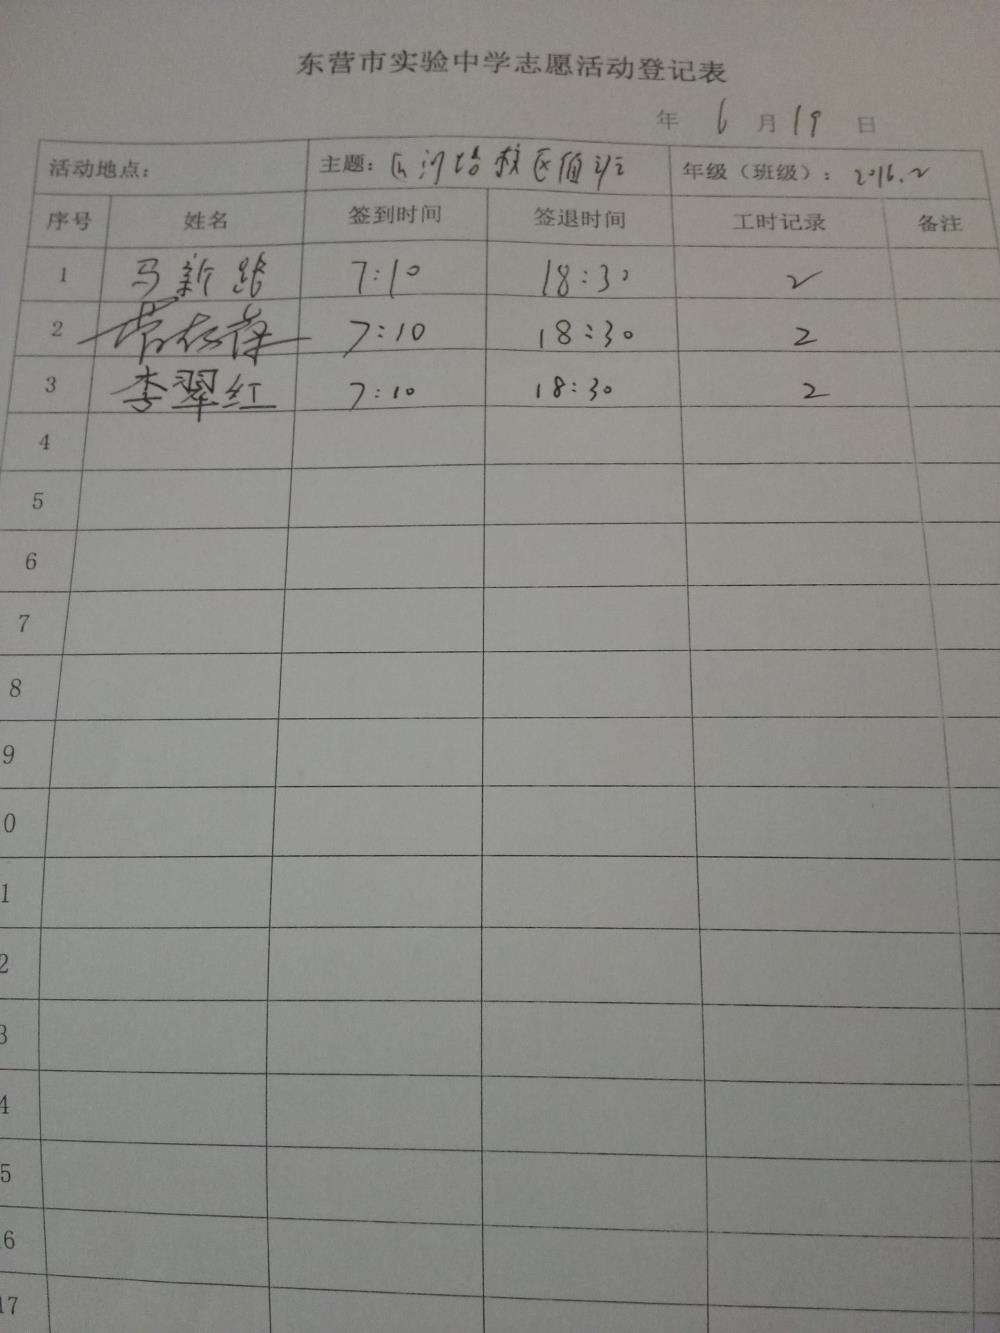 东营市实验中学志愿活动登记表
年 6 月 19 日
活动地点： 主题： 校区值班 年级（班级）： 2016.2
序号 姓名 签到时间 签退时间 工时记录 备注
1 马新 7:10 18:30 2
2 7:10 18:30 2
3 李翠红 7:10 18:30 2
4
5
6
7
8
9
0
1
2
3
4
5
6
17